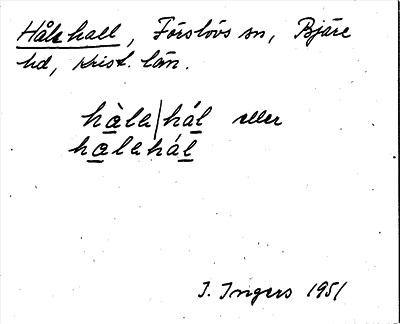 Hålehall, Förslövs sn, Bjäre
hd, Krist. län.
hàla|hál eller
halahál
I. Ingers 1951